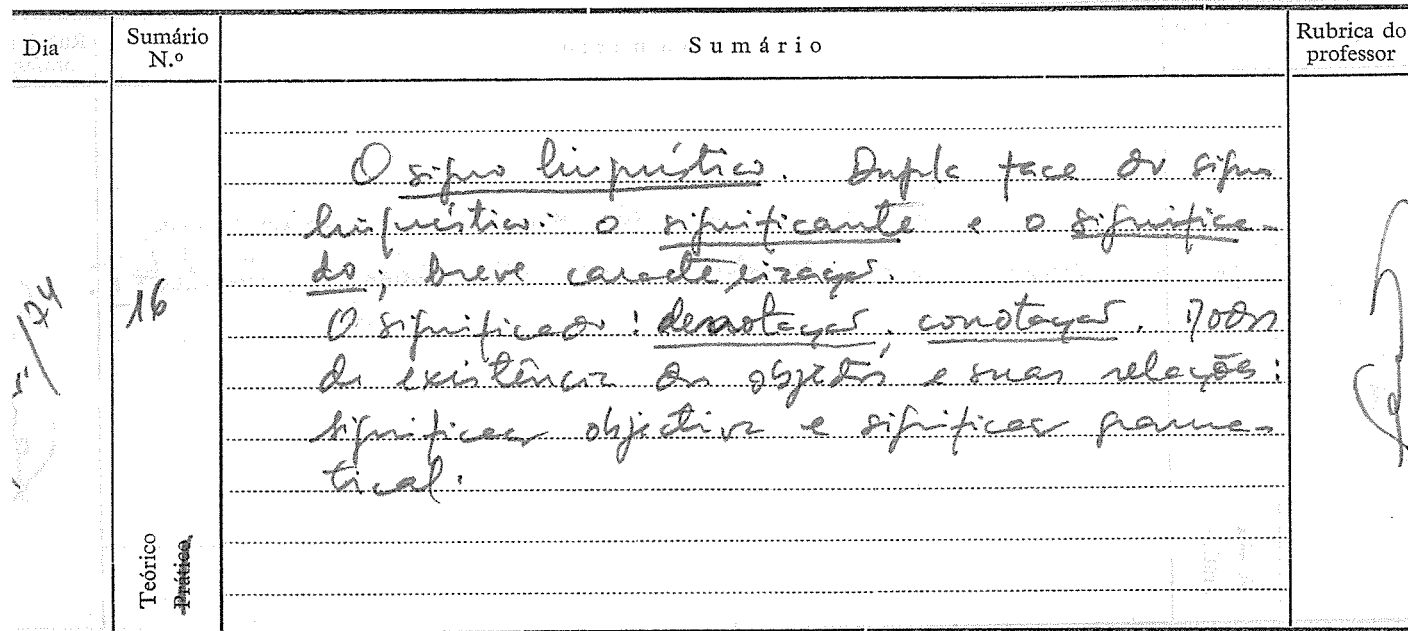 Dia
Sumário N.º
Sumário
Rubrica do professor
O signo linguístico. Dupla face do signo
linguístico: o significante e o significa-
do; breve caracterização.
16
/74
O significado: denotação, conotação. Modos
de existência dos objectos e suas relações:
significação objectiva e significação grama-
tical.
Teórico
Prático